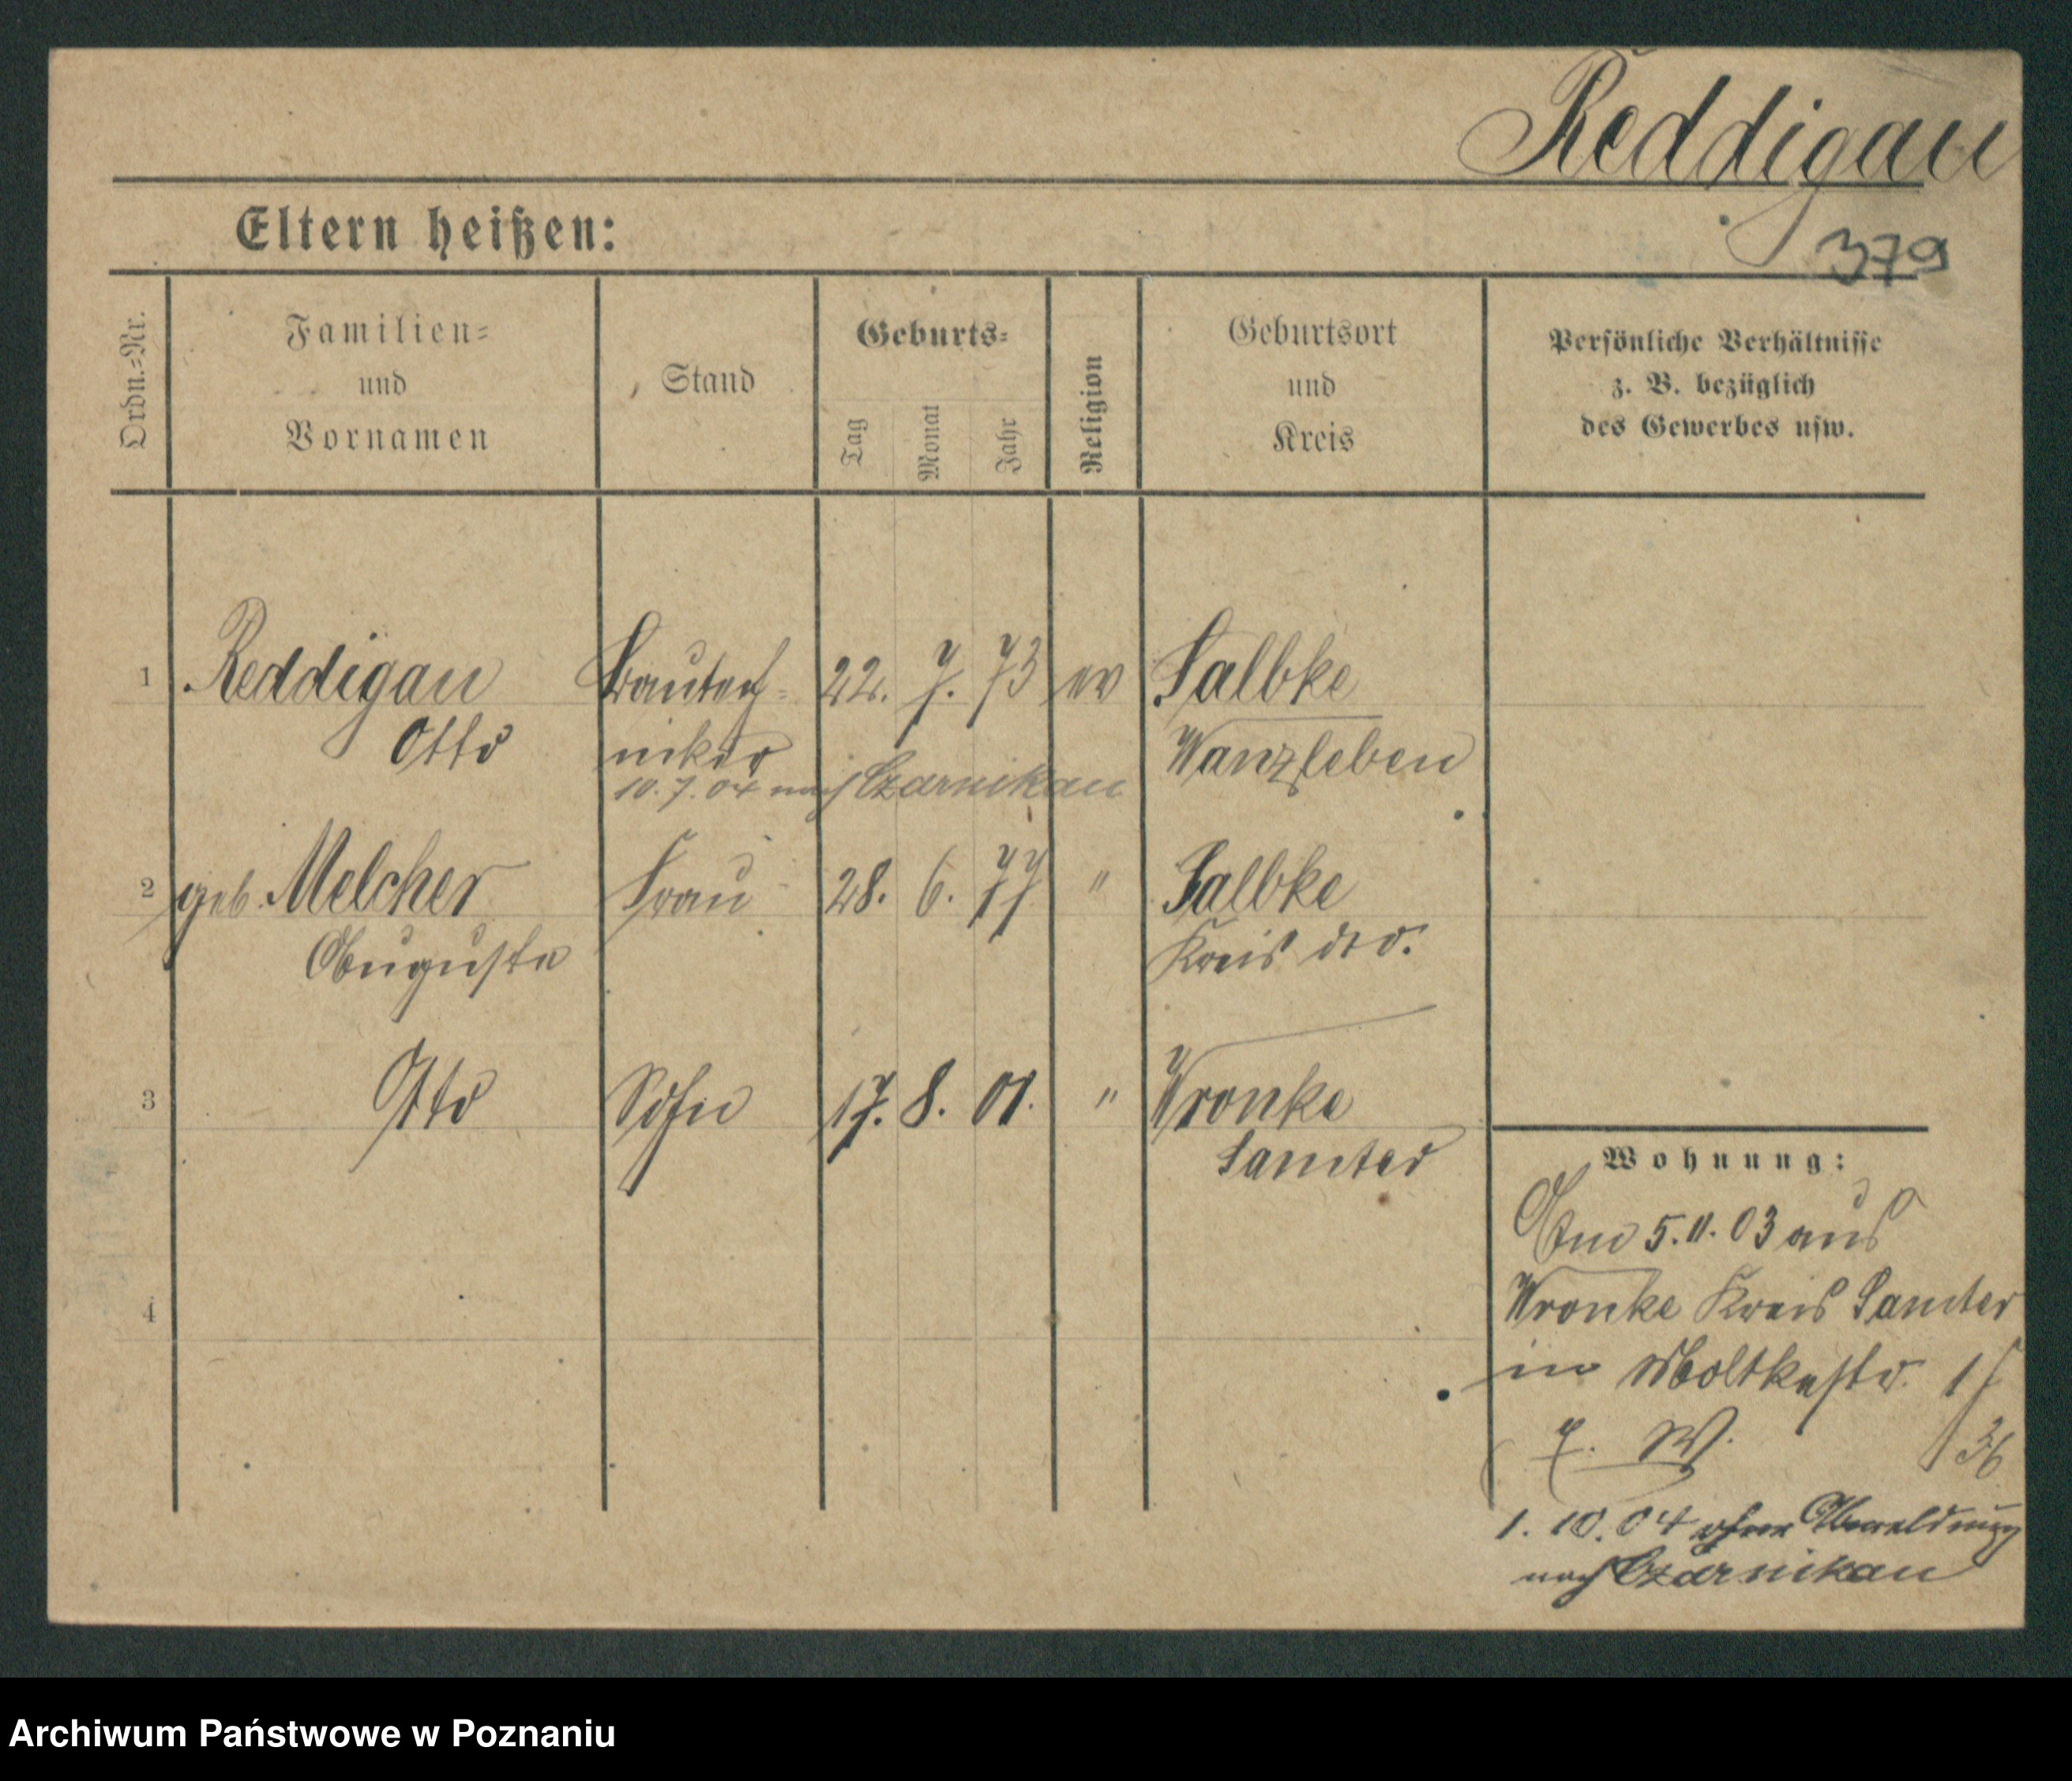 Reddigau
Eltern heißen:
379
Ordn.=Nr.
Familien=
und
Vornamen
Stand
Geburts=
Tag
Monat
Jahr
Religion
Geburtsort
und
Kreis
Persönliche Verhältnisse
z. B. bezüglich
des Gewerbes usw.
1 Reddigau Bautech= 22. 7. 73 ev Salbke
Otto niker Wanzleben
10.7.04 nach Czarnikau
2 geb. Melcher Frau 28. 6. 77 " Salbke
Auguste Kreis dto.
3 Otto Sohn 17. 8. 01. " Wronke
Samter
4
Wohnung:
Am 5.11.03 aus
Wronke Kreis Samter
in Moltkestr.
W.
36
1. 10. 04 ohne Abmeldung
nach Czarnikau
Archiwum Państwowe w Poznaniu